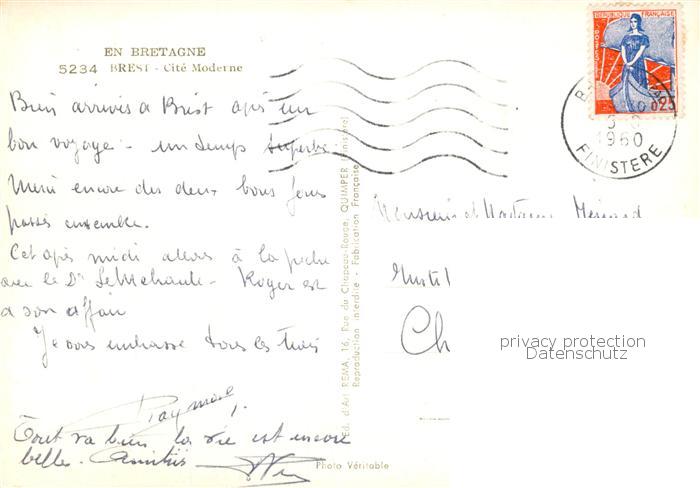 EN BRETAGNE
5234 BREST - Cité Moderne
Bien arrivés a Brest après un
bon voyage - un temps superbe.
Merci encore des deux bons jours
passés ensemble.
Cet après midi allons à la peche
avec le Dr - Roger est
a son affair
Je vous embrasse tous les trois
Raymond
Tout va bien la vie est encore
belle. Amitiés
Ed. d'Art REMA, 16, Rue du Chapeau-Rouge, QUIMPER (Finistère)
Reproduction interdite - Fabrication Française
Photo Véritable
REPUBLIQUE FRANÇAISE
0,25
1960
FINISTERE
Monsieur et Madame
Ch
privacy protection
Datenschutz